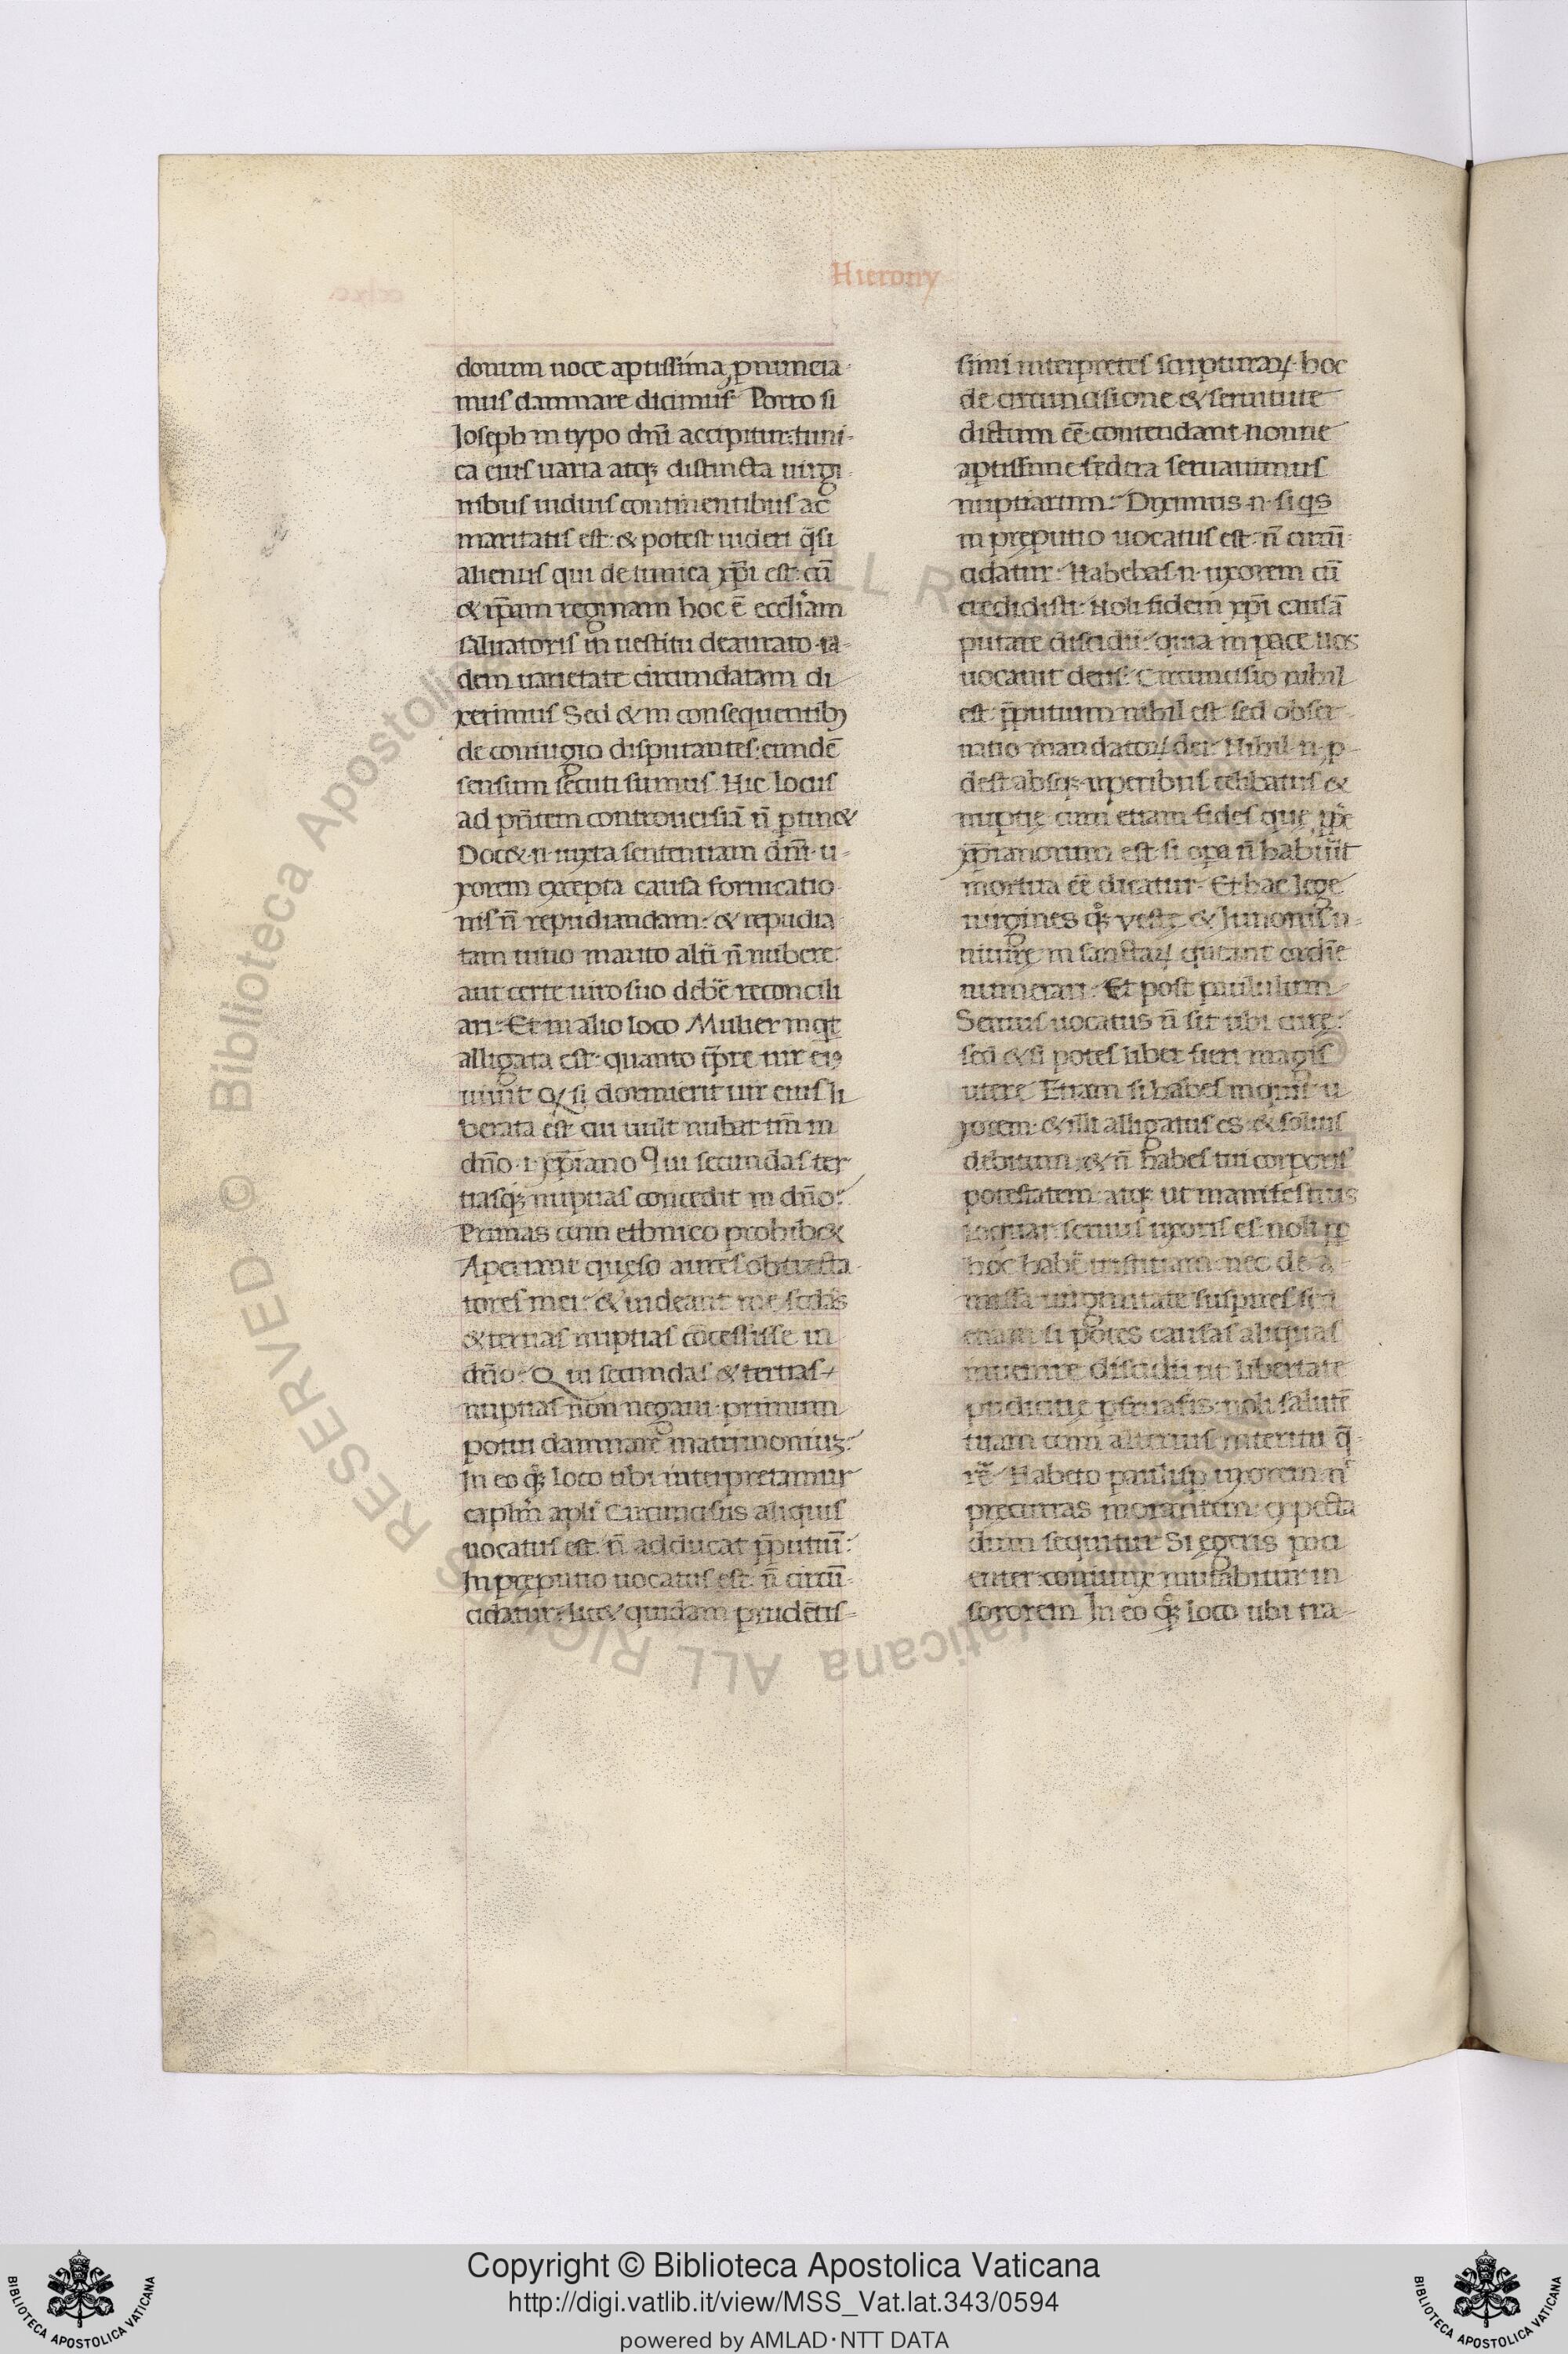 Hierony
donum uoce aptissima, pnuncia-
mus damnare dicimur? Porro si
Ioseph in typo dñi accipitur: tuni-
ca eius uaria atq; distincta uirgi-
nibus uiduis continentibus ac
maritatis est: & potest uideri q̃si
alienus qui de tunica xp̃i est: cũ
& ip̃am reginam hoc ẽ eccl̃iam
saluatoris in uestitu deaurato ea-
dem uarietate circundatam di
xerimus Sed & in consequentib;
de coniugio disputantes: eundẽ
sensum secuti sumus. Hic locus
ad pñtem controuersiã ñ ptin&
Doc& n iuxta sententiam dñi u-
xorem excepta causa fornicatio-
nis ñ repudiandam: & repudia
tam uiuo marito altĩ ñ nubere:
aut certe uiro suo debẽ reconcili
ari: Et in alio loco Mulier inqt
alligata est: quanto tp̃re uir ei9
uiuit Q si dormierit uir eius li
berata est: cui uult nubat tm̃ in
dño .i. xp̃iano Qui secundas ter
tiasq; nuptias concedit in dño:
Primas cum ethnico prohib&
Aperiant quęso aures obtrecta
tores mei: & uideant me secdãs
& tertias nuptias cõcessisse in
dño: Qui secundas & tertias
nuptias non negaui: primum
potui damnare matrimonium:
In eo q̊; loco ubi interpretamur
caplm̃ apli Circuncisus aliquis
uocatus est: ñ adducat p̃putiũ:
In pręputio uocatus est: ñ circũ-
cidatur: lic& quidam prudẽtis-
simi interpretes scripturar̃ hoc
de circuncisione & seruitute
dictum eẽ contendant: nonne
aptissime federa seruauimus
nuptiarum: Diximus .n. si q̃s
in pręputio uocatus est: ñ circũ-
cidatur: Habebas .n. uxorem cũ
credidisti: Noli fidem xp̃i causã
putare discidii: quia in pace uos
uocauit deus: Circuncisio nihil
est: p̃putium nihil est: sed obser-
uatio mandator̃ dei: Nihil .n. p-
dest absq; operibus celibatus &
nuptię: cum etiam fides que pp̃e
xp̃ianorum est: si opa ñ habuĩt
mortua eẽ dicatur: Et hac lege
uirgines q̊; Vestę & Iunonis u-
niuirę in sanctar̃ queant ordĩe
numerari: Et post paululum
Seruus uocatus ñ sit tibi curę:
sed & si potes liber fieri magis
utere Etiam si habes inquit u-
xorem: & illi alligatus es: & soluis
debitum: & ñ habes tui corporis
potestatem: atq; ut manifestius
loquar: seruus uxoris es: noli pp
hoc habẽ tristitiam: nec de a-
missa uirginitate suspires: sed
etiam si potes causas aliquas
inuenire discidii ut libertate
pudicitię pfruaris: noli salutẽ
tuam cum alterius interitu q̃-
rẽ Habeto paulisp uxorem: ñ
precurras morantem: expecta
dum sequitur Si egeris paci
enter: coniunx mutabitur in
sororem In eo q̊; loco ubi tra-
Copyright © Biblioteca Apostolica Vaticana
http://digi.vatlib.it/view/MSS_Vat.lat.343/0594
powered by AMLAD·NTT DATA